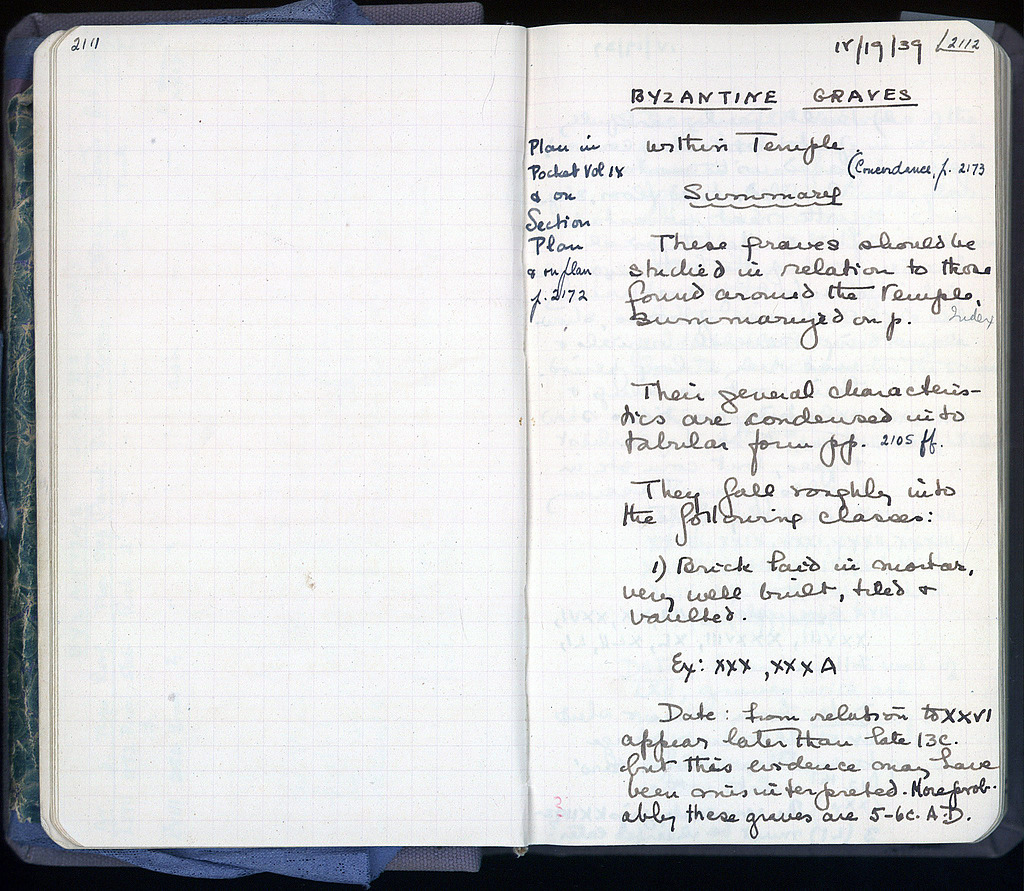 2111
IV/19/39 2112
BYZANTINE GRAVES
within Temple.
(Concordance, p. 2173
Summary
Plan in
Pocket Vol IX
& on
Section
Plan
& on plan
p. 2172
These graves should be
studied in relation to those
found around the Temple,
summarized on p. Index
Their general characteris-
tics are condensed into
tabular form pp. 2105 ff.
They fall roughly into
the following classes:
1) Brick laid in mortar,
very well built, tiled &
vaulted.
Ex: XXX, XXX A
Date: from relation to XXVI
appear later than late 13c.
but this evidence may have
been misinterpreted. More prob-
ably these graves are 5-6c. A.D.